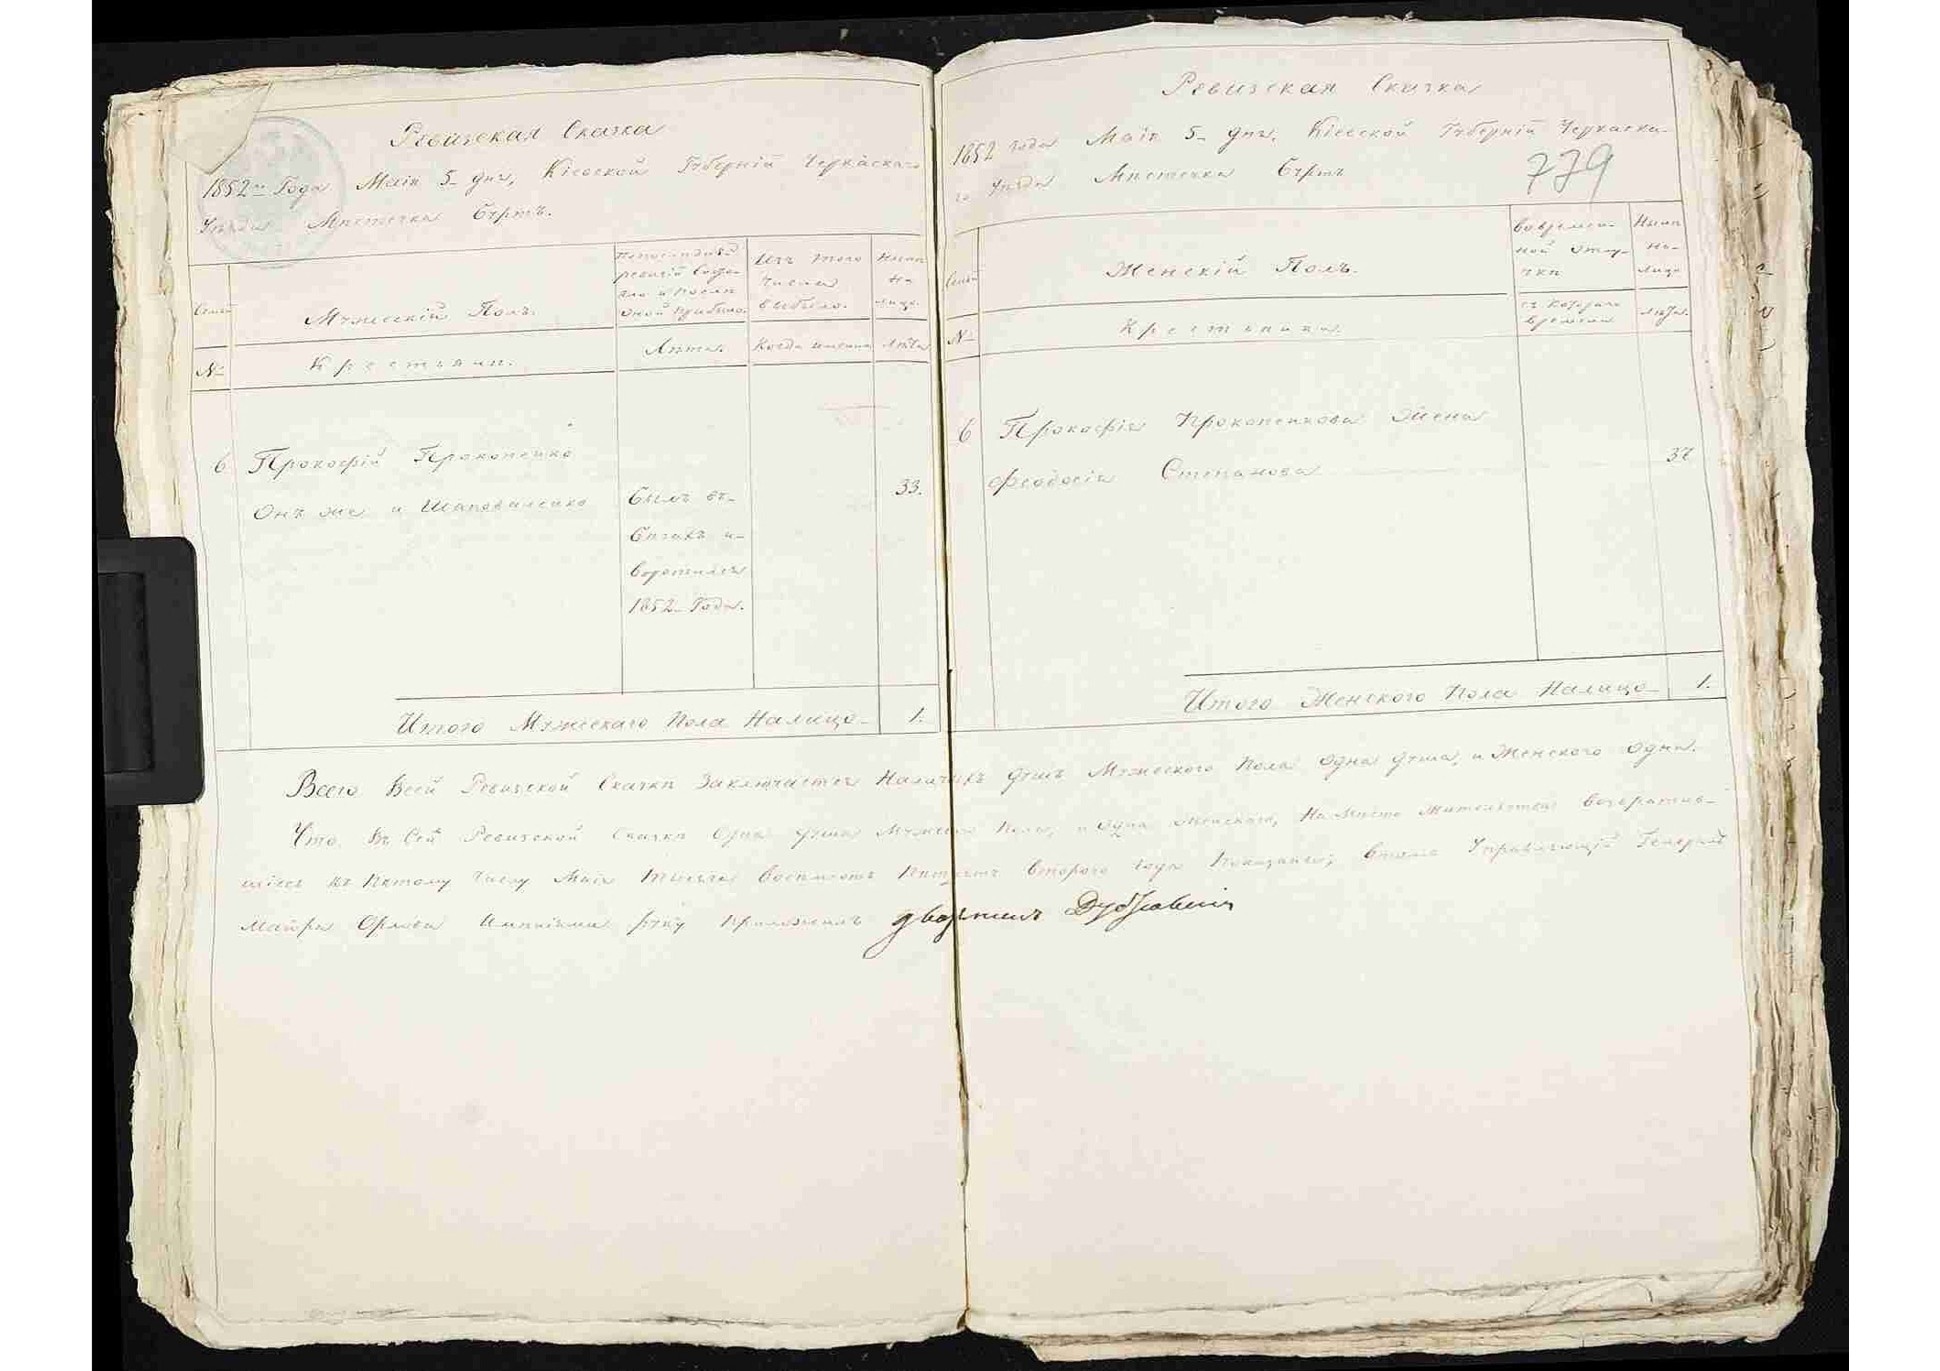 Ревизская Сказка
1852го Года Маія 5 дня, Кіевской Губерніи Черкаска-го
Уѣзда Мѣстечка Бурты.
Семьи
Мужескій Полъ.
По последней
ревизіи состо-
яло и после
оной прибыло.
Изъ того
числа
выбыло.
Нынѣ
на
лицо.
№
Крестьяни.
Лѣта.
Когда именно
Лѣта
6 Прокофій Прокопенко
Онъ же и Шаповаленко
былъ въ
бѣгахъ и
воротился
1852 Года.
33.
Итого Мужескаго Пола Налицо 1.
Ревизская Сказка
1852 года Маія 5 дня, Кіевской Губерніи Черкаска-
го Уѣзда Мѣстечка Бурты
779
Семьи
Женскій Полъ.
Во времен-
ной отлу-
чки
Нынѣ
на-
лицо
№
Крестьянки.
съ котораго
времени
лѣта.
6 Прокофія Прокопенкова жена
Феодосія Степанова 37
Итого Женского Пола Налицо 1.
Всего Всей Ревизской Сказкѣ Заключается Наличныхъ душъ Мужеского Пола одна душа, и Женского одна.
Что Въ Сей Ревизской Сказкѣ Одна душа Мужеска Пола, и одна Женского, На Место Жительства Возвратив-
шіесь къ Пятому Числу Маія Тысяча Восемсотъ Пятдесятъ Второго года Показаны; Управляющій Генералъ
Маіора Орлова Имѣніями руку Приложилъ дворянинъ